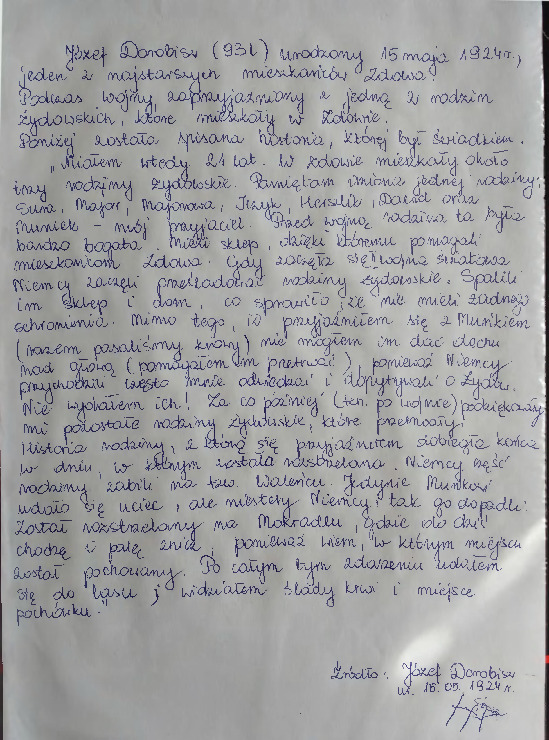 Józef Dorobisz (93l) urodzony 15 maja 1924r.,
jeden z najstarszych mieszkańców Zdowa.
Podczas wojny zaprzyjaźniany z jedną z rodzin
żydowskich, które mieszkały w Zdowie.
Poniżej została spisana historia, której był świadkiem.
„Miałem wtedy 21 lat. W Zdowie mieszkały około
trzy rodziny żydowskie. Pamiętam imiona jednej rodziny:
Sura, Major, Majorowa, Jrzyk, Herszlik, Dawid oraz
Muniek - mój przyjaciel. Przed wojną rodzina ta była
bardzo bogata. Mieli sklep, dzięki któremu pomagali
mieszkańcom Zdowa. Gdy zaczęła się II wojna światowa
Niemcy zaczęli prześladować rodziny żydowskie. Spalili
im sklep i dom, co sprawiło że nie mieli żadnego
schronienia. Mimo tego, iż przyjaźniłem się z Muńkiem
(razem pasaliśmy krowy) nie mogłem im dać dachu
nad głową (pomagałem im przetrwać), ponieważ Niemcy
przychodzili często mnie odwiedzać i dopytywali o Żydów.
Nie wydałem ich! Za co później (ten. po wojnie) podziękowały
mi pozostałe rodziny żydowskie, które przetrwały!
Historia rodziny, z którą się przyjaźniłem dobiegła końca
w dniu, w którym została rozstrzelana. Niemcy część
rodziny zabili na tzw. Waleńcu. Jedynie Muńkowi
udało się uciec, ale niestety Niemcy i tak go dopadli.
Został rozstrzelany na Mokradlu, gdzie do dziś
chodzę i palę znicz, ponieważ wiem, w którym miejscu
został pochowany. Po całym tym zdarzeniu udałem
się do lasu i widziałem ślady krwi i miejsce
pochówku."
Źródło: Józef Dorobisz
ur. 15.05.1924r.